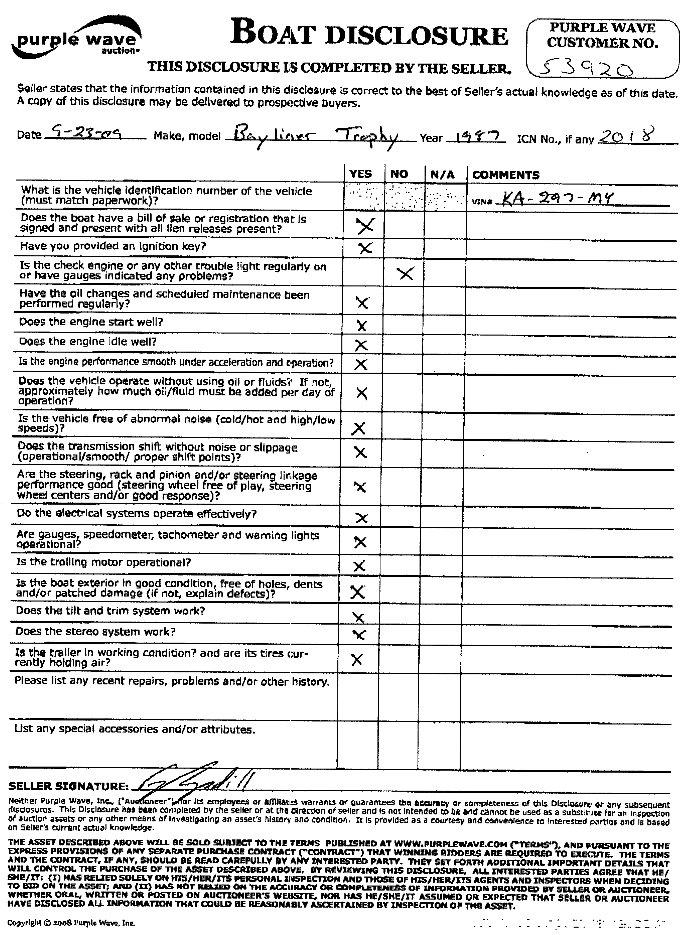 purple wave
auction
BOAT DISCLOSURE
PURPLE WAVE
CUSTOMER NO.
53920
THIS DISCLOSURE IS COMPLETED BY THE SELLER.
Seller states that the information contained in this disclosure is correct to the best of Seller's actual knowledge as of this date.
A copy of this disclosure may be delivered to prospective buyers.
Date 9-23-09 Make, model Bayliner Trophy Year 1987 ICN No., if any 2018
YES NO N/A COMMENTS
What is the vehicle identification number of the vehicle
(must match paperwork)?
VIN# KA-297-MY
Does the boat have a bill of sale or registration that is
signed and present with all lien releases present? X
Have you provided an ignition key? X
Is the check engine or any other trouble light regularly on
or have gauges indicated any problems? X
Have the oil changes and scheduled maintenance been
performed regularly? X
Does the engine start well? X
Does the engine idle well? X
Is the engine performance smooth under acceleration and operation? X
Does the vehicle operate without using oil or fluids? If not,
approximately how much oil/fluid must be added per day of
operation? X
Is the vehicle free of abnormal noise (cold/hot and high/low
speeds)? X
Does the transmission shift without noise or slippage
(operational/smooth/ proper shift points)? X
Are the steering, rack and pinion and/or steering linkage
performance good (steering wheel free of play, steering
wheel centers and/or good response)? X
Do the electrical systems operate effectively? X
Are gauges, speedometer, tachometer and warning lights
operational? X
Is the trolling motor operational? X
Is the boat exterior in good condition, free of holes, dents
and/or patched damage (if not, explain defects)? X
Does the tilt and trim system work? X
Does the stereo system work? X
Is the trailer in working condition? and are its tires cur-
rently holding air? X
Please list any recent repairs, problems and/or other history.
List any special accessories and/or attributes.
SELLER SIGNATURE:
Neither Purple Wave, Inc., ("Auctioneer") nor its employees or affiliates warrants or guarantees the accuracy or completeness of this Disclosure or any subsequent
disclosures. This Disclosure has been completed by the seller or at the direction of seller and is not intended to be and cannot be used as a substitute for an inspection
of auction assets or any other means of investigating an asset's history and condition. It is provided as a courtesy and convenience to interested parties and is based
on Seller's current actual knowledge.
THE ASSET DESCRIBED ABOVE WILL BE SOLD SUBJECT TO THE TERMS PUBLISHED AT WWW.PURPLEWAVE.COM ("TERMS"), AND PURSUANT TO THE
EXPRESS PROVISIONS OF ANY SEPARATE PURCHASE CONTRACT ("CONTRACT") THAT WINNING BIDDERS ARE REQUIRED TO EXECUTE. THE TERMS
AND THE CONTRACT, IF ANY, SHOULD BE READ CAREFULLY BY ANY INTERESTED PARTY. THEY SET FORTH ADDITIONAL IMPORTANT DETAILS THAT
WILL CONTROL THE PURCHASE OF THE ASSET DESCRIBED ABOVE. BY REVIEWING THIS DISCLOSURE, ALL INTERESTED PARTIES AGREE THAT HE/
SHE/IT: (I) HAS RELIED SOLELY ON HIS/HER/ITS PERSONAL INSPECTION AND THOSE OF HIS/HER/ITS AGENTS AND INSPECTORS WHEN DECIDING
TO BID ON THE ASSET; AND (II) HAS NOT RELIED ON THE ACCURACY OR COMPLETENESS OF INFORMATION PROVIDED BY SELLER OR AUCTIONEER,
WHETHER ORAL, WRITTEN OR POSTED ON AUCTIONEER'S WEBSITE, NOR HAS HE/SHE/IT ASSUMED OR EXPECTED THAT SELLER OR AUCTIONEER
HAVE DISCLOSED ALL INFORMATION THAT COULD BE REASONABLY ASCERTAINED BY INSPECTION OF THE ASSET.
Copyright © 2008 Purple Wave, Inc.